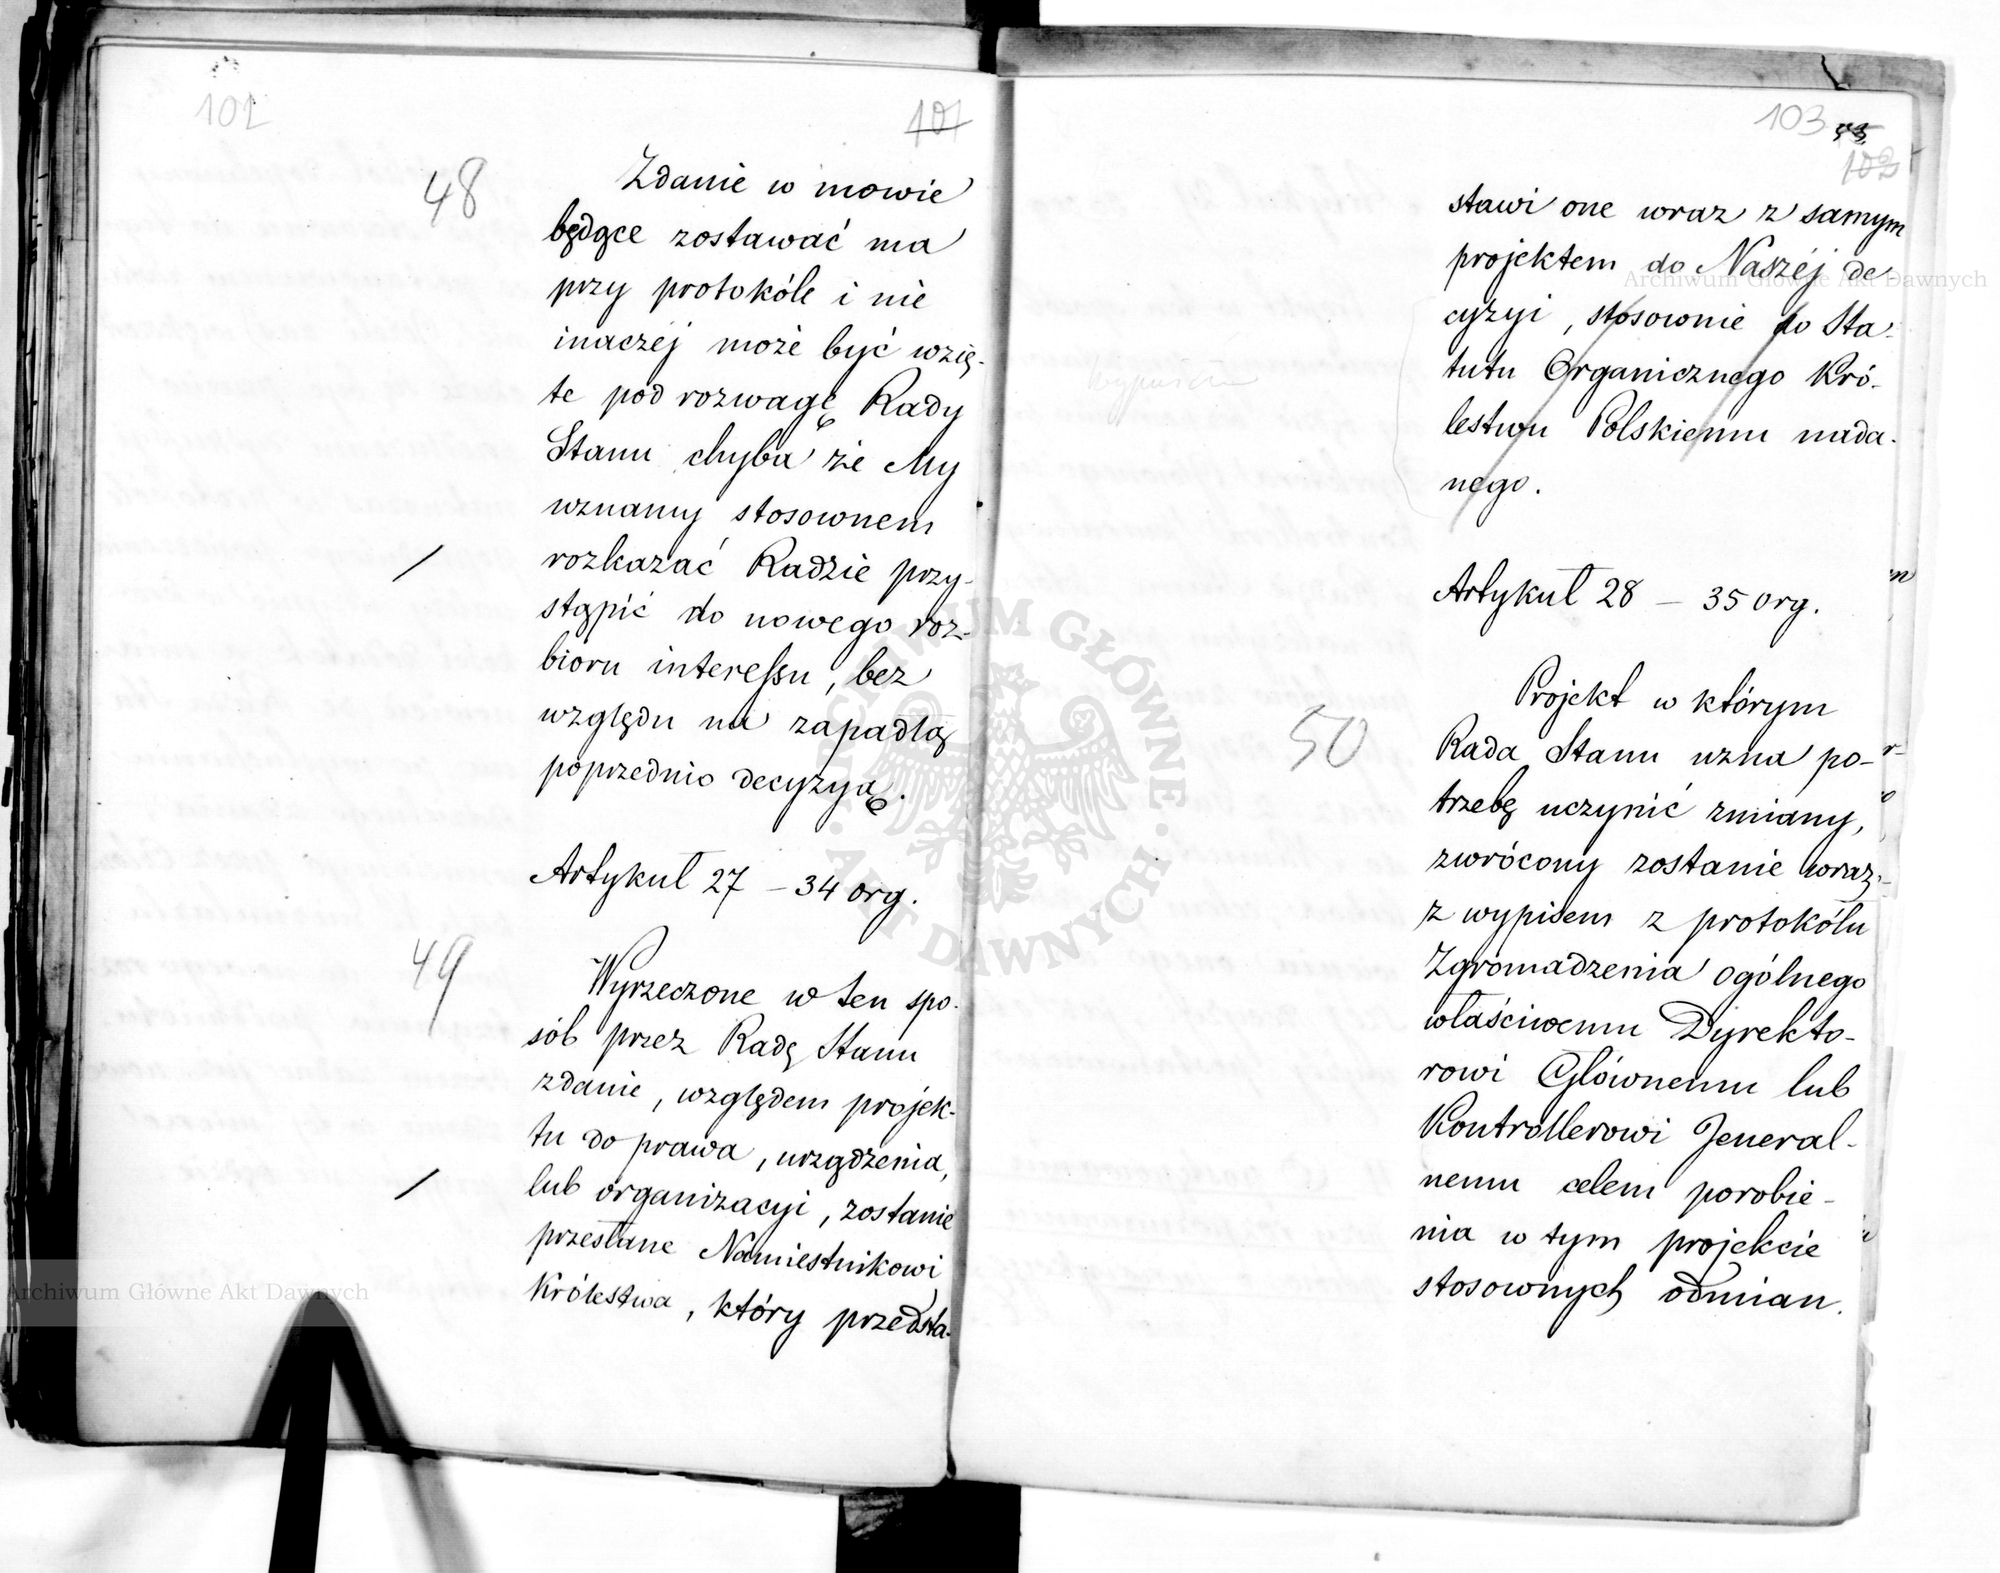 102
101
48
Zdanie w mowie
będące zostawać ma
przy protokóle i nie
inaczéj może być wzię-
te pod rozwagę Rady
Stanu chyba że My
uznamy stosownem
rozkazać Radzie przy-
stąpić do nowego roz-
bioru interessu, bez
względu na zapadłą
poprzednio decyzyą.
Artykuł 27 – 34 org.
49
Wyrzeczone w ten spo-
sób przez Radę Stanu
zdanie, względem projek-
tu do prawa, urządzenia,
lub organizacyi, zostanie
przesłane Namiestnikowi
Królestwa, który przedsta-
103
102
stawi one wraz z samym
projektem do Naszéj de-
cyzyi, stosownie do Sta-
tutu Organicznego Kró-
lestwu Polskiemu nada-
nego.
wypuścić
Artykuł 28 – 35 org.
50
Projekt w którym
Rada Stanu uzna po-
trzebę uczynić zmiany,
zwrócony zostanie wraz
z wypisem z protokółu
Zgromadzenia ogólnego
właściwemu Dyrekto-
rowi Głównemu lub
Kontrollerowi Jeneral-
nemu celem porobie-
nia w tym projekcie
stosownych odmian.
ARCHIWUM GŁÓWNE AKT DAWNYCH
Archiwum Główne Akt Dawnych
Archiwum Główne Akt Dawnych